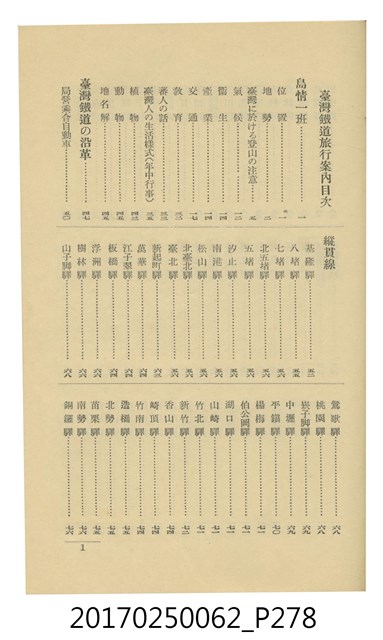 臺灣鐵道旅行案內目次
島情一班……一
位置……一
地勢……二
臺灣に於ける登山の注意……五
氣候……一二
衞生……一四
產業……一四
交通……一七
敎育……三一
蕃人の話……三三
臺灣人の生活樣式(年中行事)……三五
植物……四三
動物……四四
地名解……四五
臺灣鐵道の沿革……四七
局營乘合自動車……五〇
縱貫線
基隆驛……五二
八堵驛……五六
七堵驛……五六
北五堵驛……五六
五堵驛……五六
汐止驛……五六
南港驛……五六
松山驛……五六
北臺北驛……五六
臺北驛……五六
新起町驛……六三
萬華驛……六四
江子翠驛……六四
板橋驛……六四
浮洲驛……六六
樹林驛……六六
山子脚驛……六八
鶯歌驛……六八
桃園驛……六八
崁子脚驛……六九
中壢驛……六九
平鎭驛……七〇
楊梅驛……七一
伯公岡驛……七一
湖口驛……七一
山崎驛……七一
竹北驛……七一
新竹驛……七二
香山驛……七四
崎頂驛……七四
竹南驛……七四
造橋驛……七五
北勢驛……七五
苗栗驛……七五
南勢驛……七六
銅鑼驛……七六
1
20170250062_P278